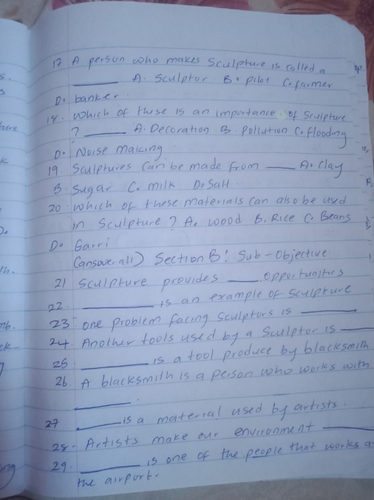 17 A person who makes sculpture is called a
_____ A. Sculptor B. Pilot C. farmer
D. banker
18. which of these is an importance of sculpture
? _____ A. Decoration B pollution C. flooding
D. Noise making
19 Sculptures can be made from ___ A. Clay
B Sugar C. milk D. Salt
20 which of these materials can also be used
in Sculpture? A. wood B. Rice C. Beans
D. Garri
(answer all) Section B: Sub-Objective
21 Sculpture provides ____ opportunities
22. ________ is an example of sculpture
23 one problem facing sculptors is ______
24. Another tools used by a sculptor is ____
25 ________ is a tool produce by blacksmith
26 A blacksmith is a person who works with
______.
27 ____ is a material used by artists.
28. Artists make our environment _____
29. ______ is one of the people that works a
the airport.